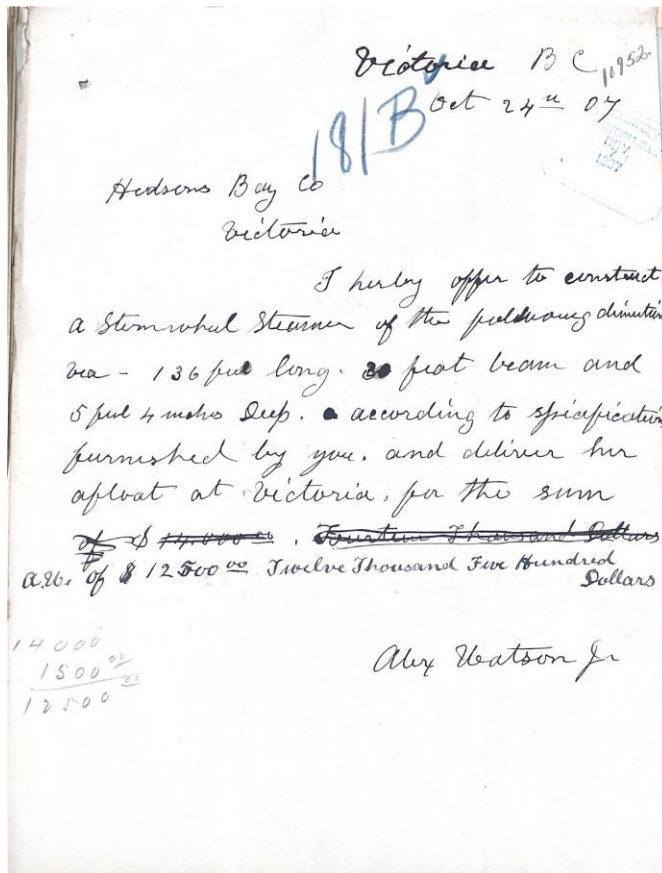 Victoria B C
10952
Oct 24th 07
181B
NOV
7
1907
Hudsons Bay Co
Victoria
I herby offer to construct
a Sternwheel Steamer of the following dimention
viz - 136 feet long. 30 feet beam and
5 feet 4 inches Deep. according to specification
furnished by you. and deliver her
afloat at Victoria, for the sum
of $ 14.000 00 . Fourteen Thousand Dollars
A.W. of $ 12500 00 Twelve Thousand Five Hundred
Dollars
14000
1500 00
12500 00
Alex Watson Jr